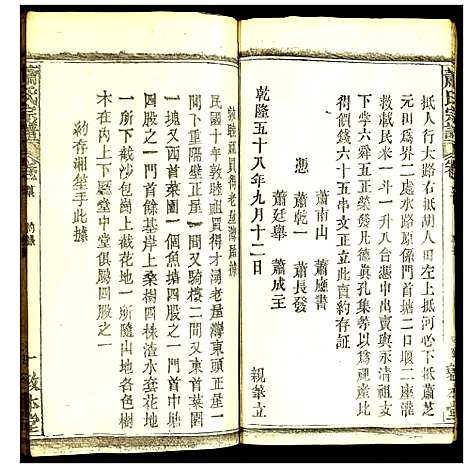 蕭氏宗譜
抵人行大路右抵胡人田左上抵河心下抵蕭芝
元田爲界二處水路原係門首塘二日堰二座灌
救戲民米一斗一升八合憑衆出賣與永清祖支
下堂六舜五正榮發凡德典孔集等以爲蒸嘗業
得價錢六十五串文正立此賣約存証
憑 蕭南山 蕭慶書
蕭乾一 蕭長發
蕭廷舉 蕭成玉
乾隆五十八年九月十二日 親筆立
敦睦祖買得老屋灣屋據
民國十年敦睦祖才明買得老屋灣東頭正屋一
間下重隔壁正屋一間又騎樓二間又東首菜園
一塊又西首菜園一個魚塘四股之一門首中堂
四股之一門首餘基岸上桑樹四株渣水套花地
一所下截沙包崗上截花地一所隨山地各色樹
木在內上下廳堂中堂俱屬四股之一
約存湘笙手此據
蕭氏宗譜
敦本堂